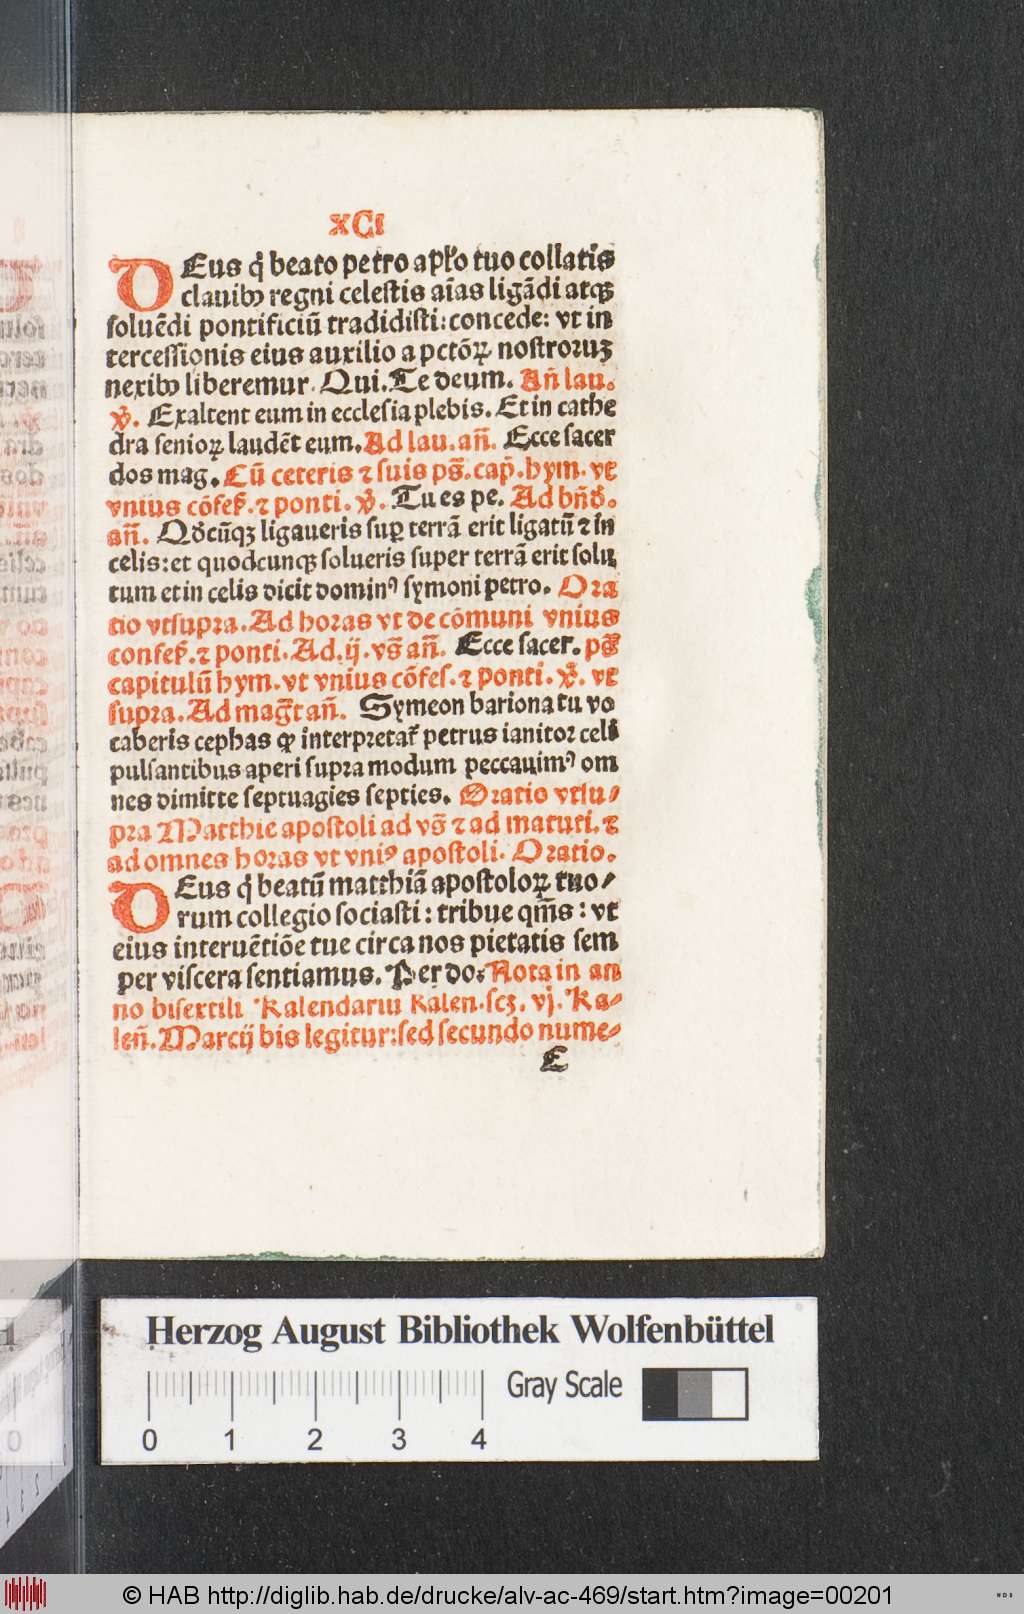 XCI
DEus q̇ beato petro apl'o tuo collatis
clauibꝰ regni celestis aīas ligādi atqꝫ
soluēdi pontificiū tradidisti: concede: vt in
tercessionis eius auxilio a pctōꝝ nostroruꝫ
nexibꝰ liberemur. Qui. Te deum. Añ lau.
℣. Exaltent eum in ecclesia plebis. Et in cathe
dra senioꝝ laudēt eum. Ad lau. añ. Ecce sacer
dos mag. Cū ceteris ⁊ suis ps̄. cap̄. hym. vt
vnius cōfeſ. ⁊ ponti. ℣. Tu es pe. Ad bn̄d̄.
añ. Qd̄cūqꝫ ligaueris suꝑ terrā erit ligatū ⁊ in
celis: et quodcunqꝫ solueris super terrā erit solu
tum et in celis dicit dominꝰ symoni petro. Ora
tio vtsupra. Ad horas vt de cōmuni vnius
confeſ. ⁊ ponti. Ad. ij. vs̄ añ. Ecce sacer. ps̄
capitulū hym. vt vnius cōfes. ⁊ ponti. ℣. vt
supra. Ad mag̅t añ. Symeon bariona tu vo
caberis cephas qḋ interpretat̄ petrus ianitor celi
pulsantibus aperi supra modum peccauimꝰ om
nes dimitte septuagies septies. Oratio vtsu⸗
pra Matthie apostoli ad vs̄ ⁊ ad matuti. ⁊
ad omnes horas vt vniꝰ apostoli. Oratio.
DEus q̇ beatū matthiā apostoloꝝ tuo⸗
rum collegio sociasti: tribue qm̄s: vt
eius interuētiōe tue circa nos pietatis sem
per viscera sentiamus. Per do: Nota in an
no bisextili Kalendariu Kalen. scꝫ. vj. Ka⸗
leñ. Marcij bis legitur: sed secundo nume⸗
E
Herzog August Bibliothek Wolfenbüttel
Gray Scale
0 1 2 3 4
© HAB http://diglib.hab.de/drucke/alv-ac-469/start.htm?image=00201